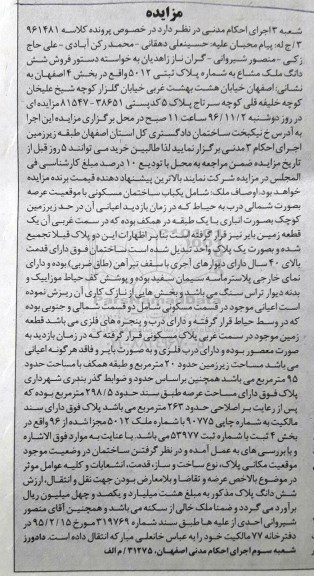 مزایده
شعبه ۳ اجرای احکام مدنی در نظر دارد در خصوص پرونده کلاسه ۹۶۱۴۸۱
۳/ج له: پیام محبان علیه: حسینعلی دهقانی - محمد رکن آبادی - علی حاج
زکی - منصور شیروانی - گران ناز زاهدیان به خواسته دستور فروش شش
دانگ ملک مشاع به شماره پلاک ثبتی ۵۰۱۲ واقع در بخش ۴ اصفهان به
نشانی: اصفهان خیابان هشت بهشت غربی خیابان گلزار کوچه شیخ علیخان
کوچه خلیفه قلی کوچه سرتاج پلاک ۵ کدپستی ۳۸۶۵۱-۸۱۵۴۷ مزایده ای
در روز دوشنبه ۹۶/۱۱/۲ ساعت ۱۱ صبح در محل برگزاری مزایده این اجرا
به آدرس خ نیکبخت ساختمان دادگستری کل استان اصفهان طبقه زیرزمین
اجرای احکام ۳ مدنی برگزار نمایند لذا طالبین خرید می توانند ۵ روز قبل از
تاریخ مزایده ضمن مراجعه به محل با تودیع ۱۰ درصد مبلغ کارشناسی فی
المجلس در مزایده شرکت نمایند بالاترین پیشنهاد دهنده قیمت برنده مزایده
خواهد بود. اوصاف ملک: شامل یکباب ساختمان مسکونی با موقعیت عرصه
بصورت شمالی درب به حیاط که در زمان بازدید اعیانی آن در حد زیرزمین
کوچک بصورت انباری با یک طبقه در همکف بوده که در سمت غربی آن یک
قطعه زمین بایر نیز قرار گرفته است بنابر اظهارات این دو پلاک قبلا تجمیع
شده و بصورت یک پلاک واحد تبدیل شده است ساختمان فوق دارای قدمت
بالای ۴۰ سال دارای دیوار های آجری با سقف تیر آهن (طاق ضربی) بوده و دارای
نمای خارجی پلاستر ماسه سیمان سفید بوده و پوشش کف حیاط موزاییک و
بدنه دیوار تراس سنگ می باشد و بخش هایی از نازک کاری آن ریزش نموده
است اعیانی موجود در قسمت مسکونی شامل دو قسمت شمالی و جنوبی بوده
که در وسط حیاط قرار گرفته و دارای درب و پنجره های فلزی می باشد قطعه
زمین موجود در سمت غربی پلاک مسکونی قرار گرفته که در زمان بازدید به
صورت محصور بوده و دارای درب فلزی و به صورت بایر و فاقد هرگونه اعیانی
می باشد مساحت زیرزمین حدود ۲۰ مترمربع و طبقه همکف با مساحت حدود
۹۵ مترمربع می باشد همچنین براساس حدود و ضوابط گذربندی شهرداری
پلاک فوق دارای مساحت عرصه طبق سند حدود ۲۹۸/۵ مترمربع بوده که
پس از رعایت بر اصلاحی حدود ۲۶۳ مترمربع می باشد پلاک فوق دارای سند
مالکیت به شماره چاپی ۹۰۷۷۵ با شماره ملک ۵۰۱۲ مجزا شده از ۹۶ واقع در
بخش ۴ ثبت با شماره ثبت ۵۳۹۷۷ می باشد. با عنایت به موارد فوق الاشاره
و با بررسی های به عمل آمده و در نظر گرفتن ساختمان در وضعیت موجود
موقعیت مکانی پلاک، نوع ساخت و ساز، قدمت، انشعابات و کلیه عوامل موثر
در موضوع بالاخص عرضه و تقاضا و بلامعارض بودن جهت نقل و انتقال، ارزش
شش دانگ پلاک مذکور به مبلغ هشت میلیارد و یکصد و چهل میلیون ریال
برآورد می گردد و ضمنا ملک خالی از سکنه می باشد و همچنین آقای منصور
شیروانی احدی از علیه ها طبق سند شماره ۳۱۹۷۶۹ مورخ ۹۵/۲/۱۵ در
دفترخانه ۷۷ مالکیت خود را به عباس خانعلی مبارکه انتقال داده است. دادورز
شعبه سوم اجرای احکام مدنی اصفهان، ۳۱۲۷۵/ م الف